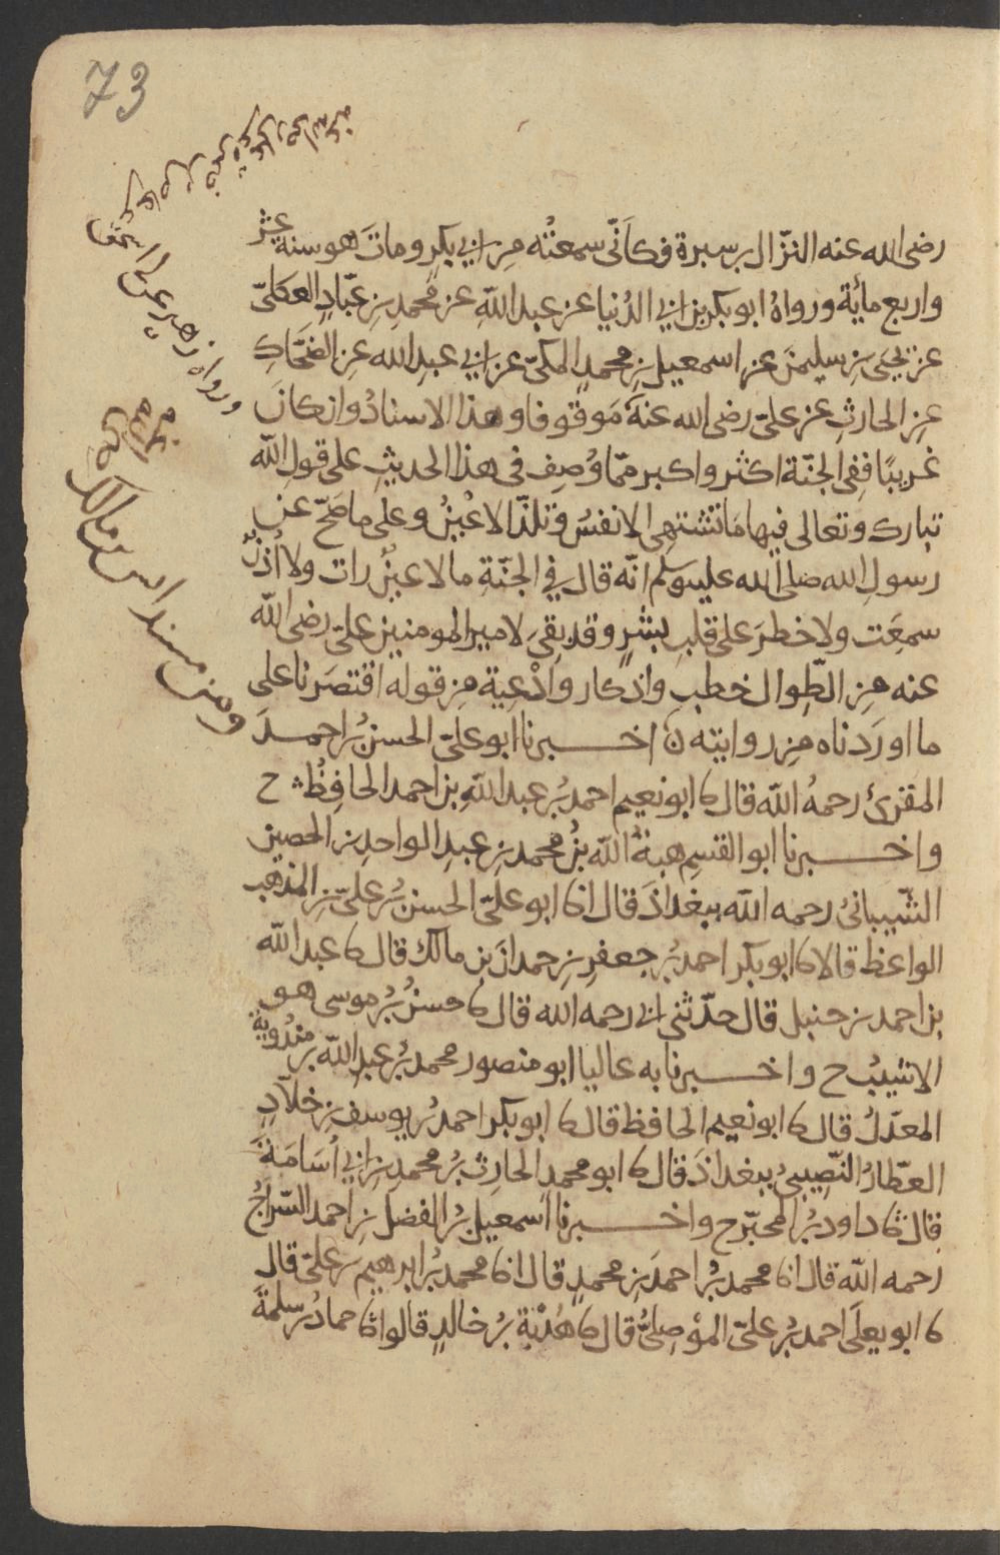 73
ورواه زهير عن ابي اسحق
ومن مسند انس بن مالك
رضى الله عنه النزّال بن سبرة فكاَنّى سمعتُه مِن ابي بكرٍ وماتَ هو سنة عشر
واربع مائة ورواهُ ابو بكر بن ابي الدُنيا عن عبد اللّهِ عن محمدِ بنِ عبّادٍ العكلىّ
عن يحيَى بنِ سليمنَ عن اسمعيل بنِ محمدٍ المكىّ عن ابي عبدِ الله عنِ الضحّاكِ
عنِ الحارثِ عن علىّ رضى الله عنهُ مَوقوفا وهذا الاسنادُ وان كانَ
غريبًا ففى الجنّة اكثر واكبر ممّا وُصِف فى هذا الحديثِ على قولِ اللّه
تبارك وتعالى فيها مَا تشتهِى الانفسُ وتلذّ الاعْيُنُ وعلى ما صَحّ عن
رسولِ الله صلى الله عليه وسلم انّه قال في الجنّةِ ما لا عينٌ رات ولا اُذُنٌ
سمعَت ولا خطرَ على قلبِ بشرٍ وقد بقىَ لامير المومنين علىّ رضى اللّه
عنه مِن الطّوال خطب واذكار وادْعية مِن قوله اقتصَرنا على
ما اورَدناه مِن روايته ن اخـبرنا ابو علىّ الحسنُ بنُ احمـدَ
المقرئُ رحمهُ اللّه قال نا ابو نعيم احمدُ بنُ عبد اللّهِ بن احمد الحافِظُ ح
واخـبرنا ابو القسِم هبةُ اللّه بنُ محمد بنِ عبدِ الواحدِ بن الحصين
الشّيبانىُ رحمه اللّه ببغداذَ قال انا ابو علىّ الحسنُ بنُ علىّ بنِ المذهب
الواعظ قالا نا ابو بكر احمدُ بنُ جعفرِ بنِ حمدانَ بن مالك قال نا عبد اللّه
بن احمد بن حنبل قال حدّثنى ابي رحمه الله قال نا حسنُ بنُ موسى هو
الاشيبُ ح واخـبرنا به عاليا ابو منصور محمدُ بنُ عبدِ اللّه بن مندُويةَ
المعدّلُ قال نا ابو نعيم الحافظ قال نا ابو بكر احمدُ بنُ يوسف بنِ خلّادٍ
العطّارُ النّصِيبىُ ببغداذَ قال نا ابو محمدٍ الحارِث بنُ محمدِ بنِ ابي اُسَامَةَ
قال نا داود بنُ المحبّر ح واخـبرنا اسمعيلُ بنُ الفضل بنِ احمد السّراجُ
رحمه اللّه قال انا محمد بنُ احمدَ بنِ محمدٍ قال انا محمدُ بنُ ابرهيم بنِ علىّ قال
نا ابو يعلَى احمد بنُ علىّ المؤصِلىُّ قال نا هُدْبَةُ بنُ خالدٍ قالوا نا حمادُ بنُ سلمةَ